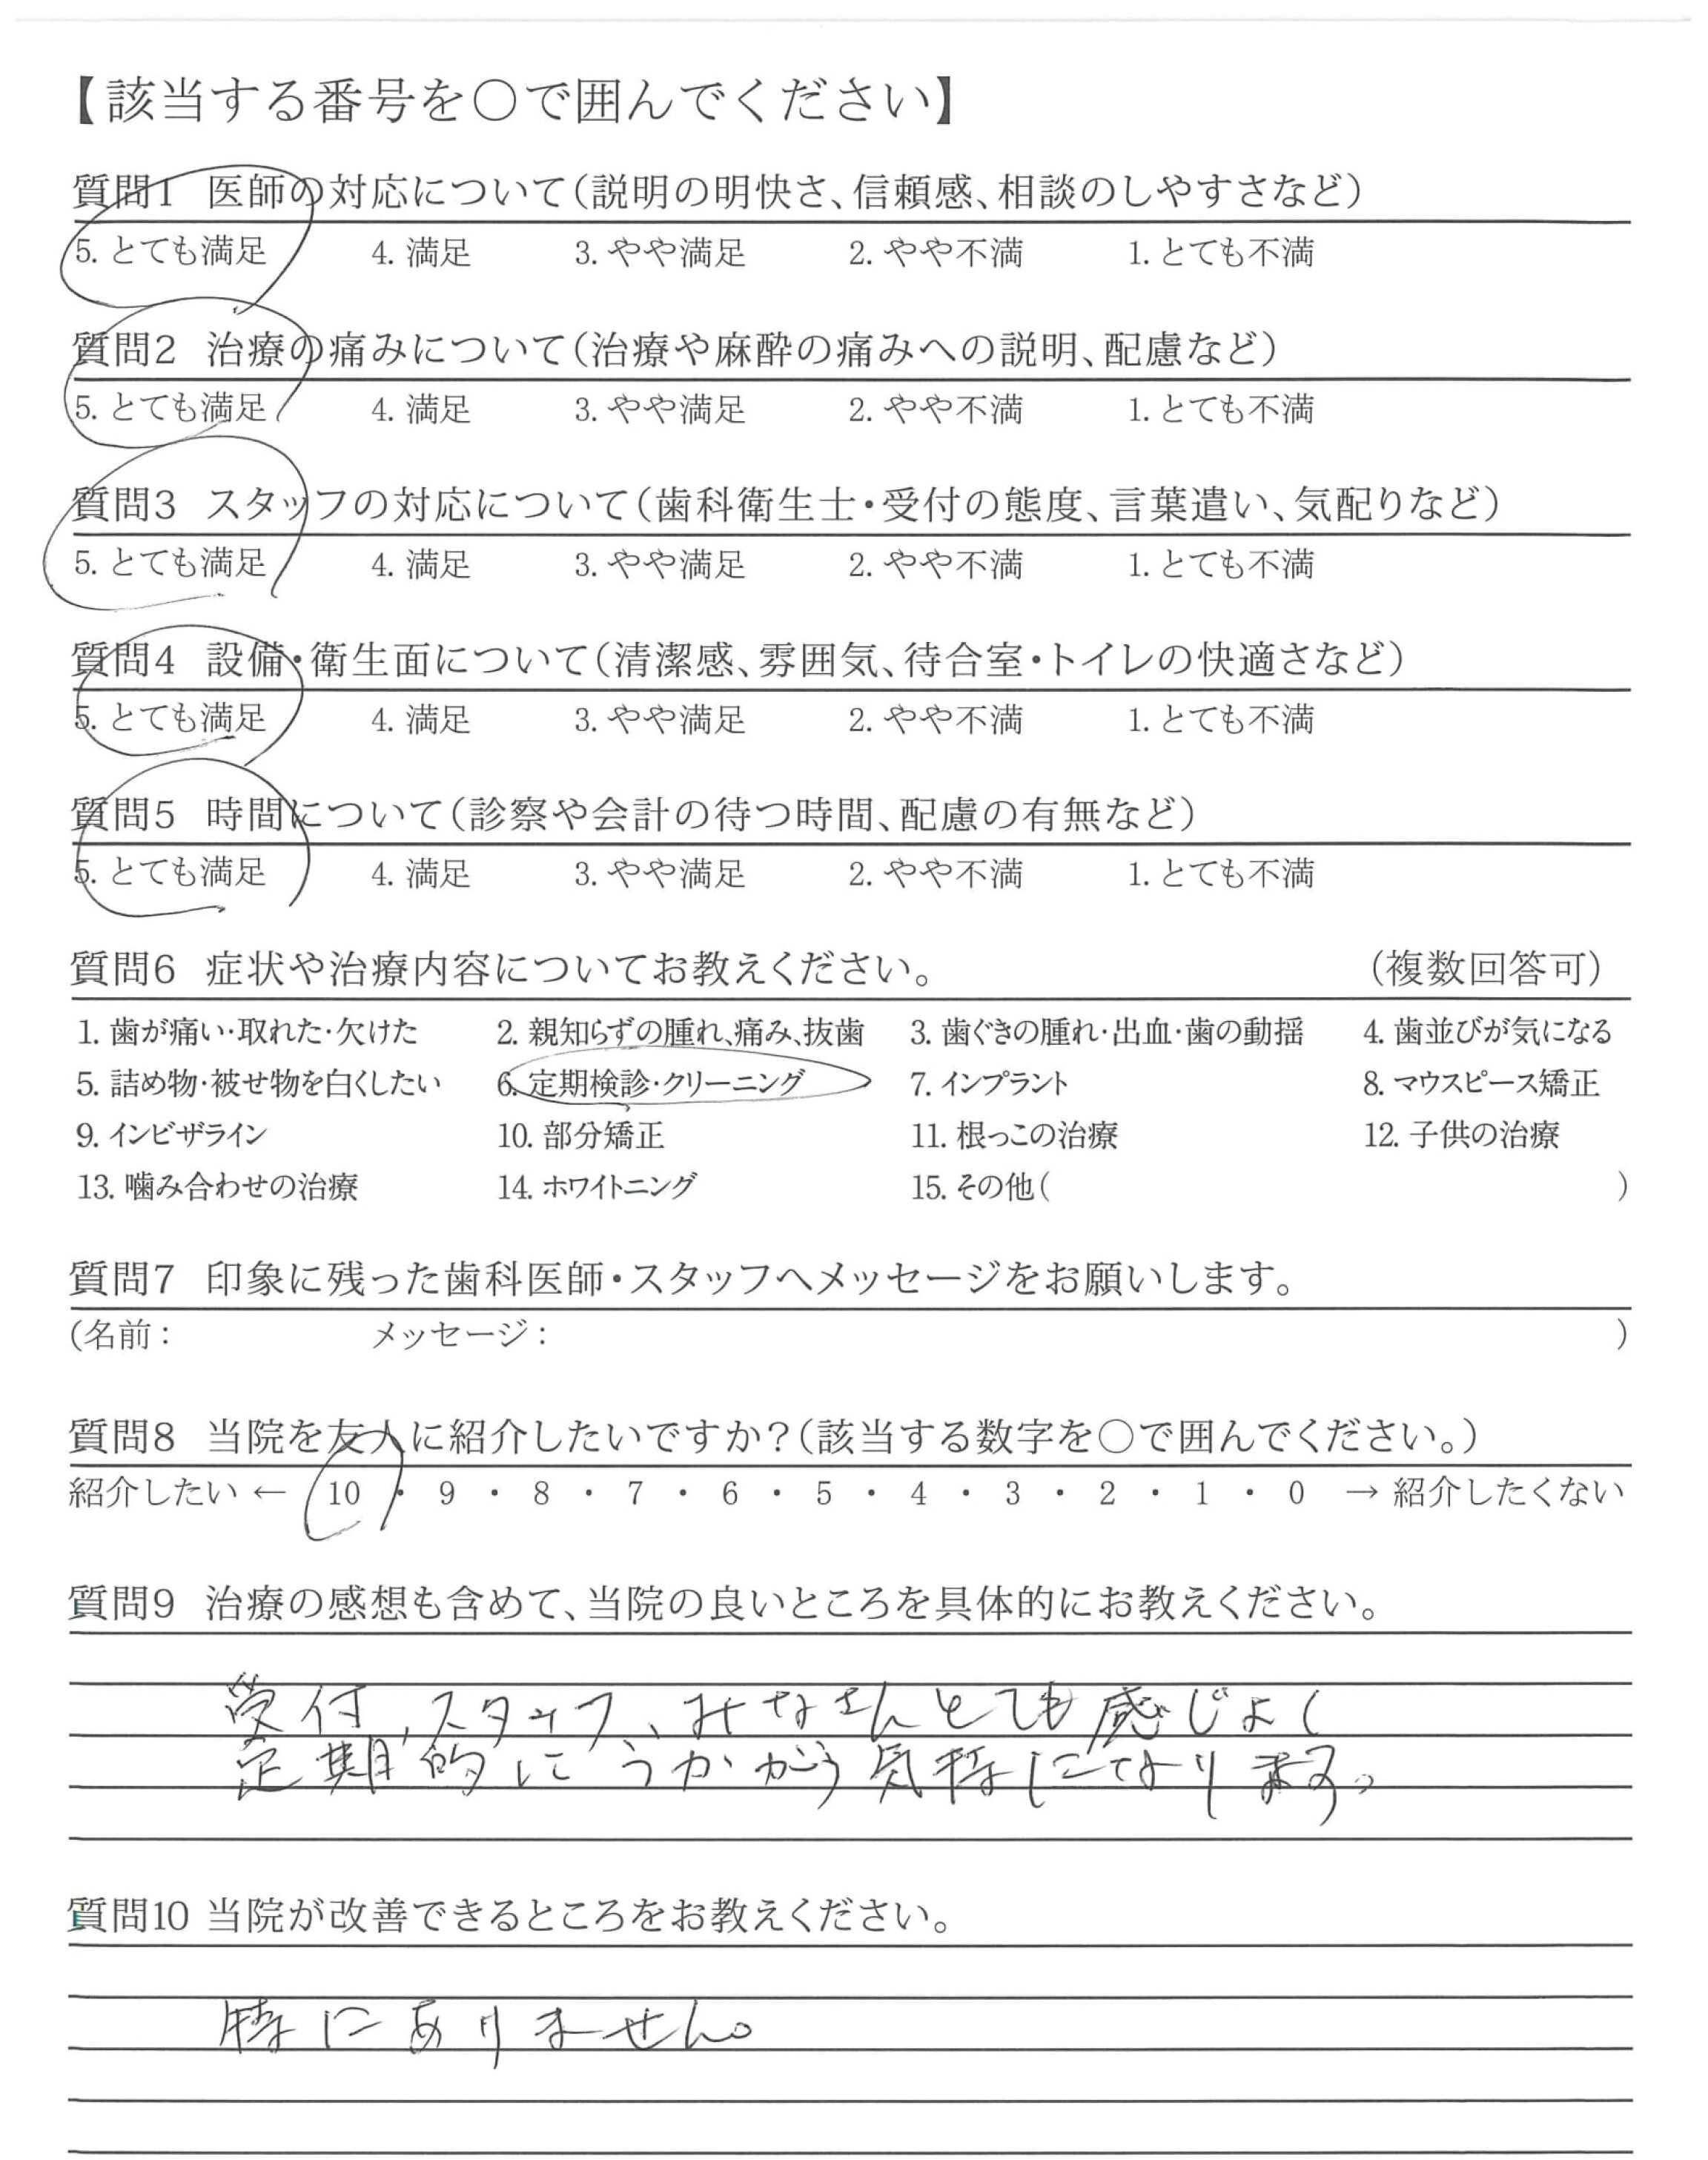 【該当する番号を〇で囲んでください】
質問1 医師の対応について（説明の明快さ、信頼感、相談のしやすさなど）
5. とても満足 4. 満足 3. やや満足 2. やや不満 1. とても不満
質問2 治療の痛みについて（治療や麻酔の痛みへの説明、配慮など）
5. とても満足 4. 満足 3. やや満足 2. やや不満 1. とても不満
質問3 スタッフの対応について（歯科衛生士・受付の態度、言葉遣い、気配りなど）
5. とても満足 4. 満足 3. やや満足 2. やや不満 1. とても不満
質問4 設備・衛生面について（清潔感、雰囲気、待合室・トイレの快適さなど）
5. とても満足 4. 満足 3. やや満足 2. やや不満 1. とても不満
質問5 時間について（診察や会計の待つ時間、配慮の有無など）
5. とても満足 4. 満足 3. やや満足 2. やや不満 1. とても不満
質問6 症状や治療内容についてお教えください。 （複数回答可）
1. 歯が痛い・取れた・欠けた 2. 親知らずの腫れ、痛み、抜歯 3. 歯ぐきの腫れ・出血・歯の動揺 4. 歯並びが気になる
5. 詰め物・被せ物を白くしたい 6. 定期検診・クリーニング 7. インプラント 8. マウスピース矯正
9. インビザライン 10. 部分矯正 11. 根っこの治療 12. 子供の治療
13. 噛み合わせの治療 14. ホワイトニング 15. その他（ ）
質問7 印象に残った歯科医師・スタッフへメッセージをお願いします。
（名前： メッセージ： ）
質問8 当院を友人に紹介したいですか？（該当する数字を〇で囲んでください。）
紹介したい ← 10 ・ 9 ・ 8 ・ 7 ・ 6 ・ 5 ・ 4 ・ 3 ・ 2 ・ 1 ・ 0 → 紹介したくない
質問9 治療の感想も含めて、当院の良いところを具体的にお教えください。
受付、スタッフ、みなさんとても感じよく
定期的にうかがう気持になります。
質問10 当院が改善できるところをお教えください。
特にありません。